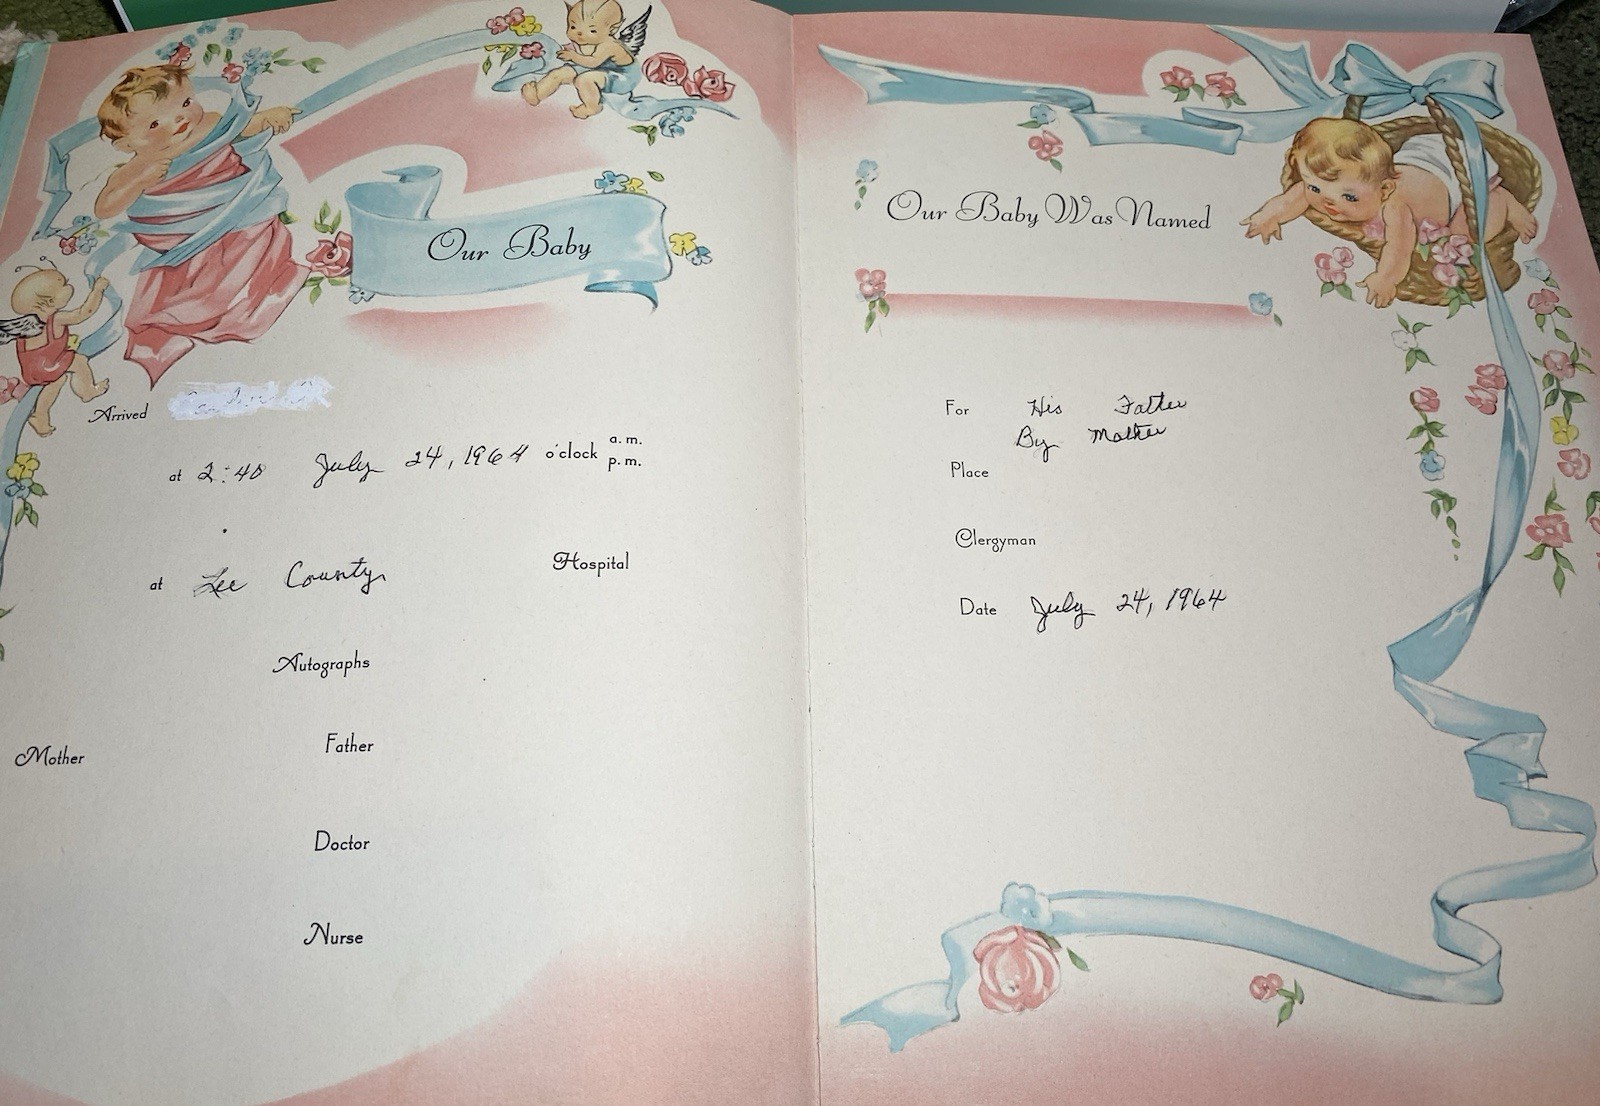 Our Baby
Arrived
at 2:40 July 24, 1964 o'clock a.m. p.m.
at Lee County Hospital
Autographs
Mother Father
Doctor
Nurse
Our Baby Was Named
For His Father
By Mother
Place
Clergyman
Date July 24, 1964